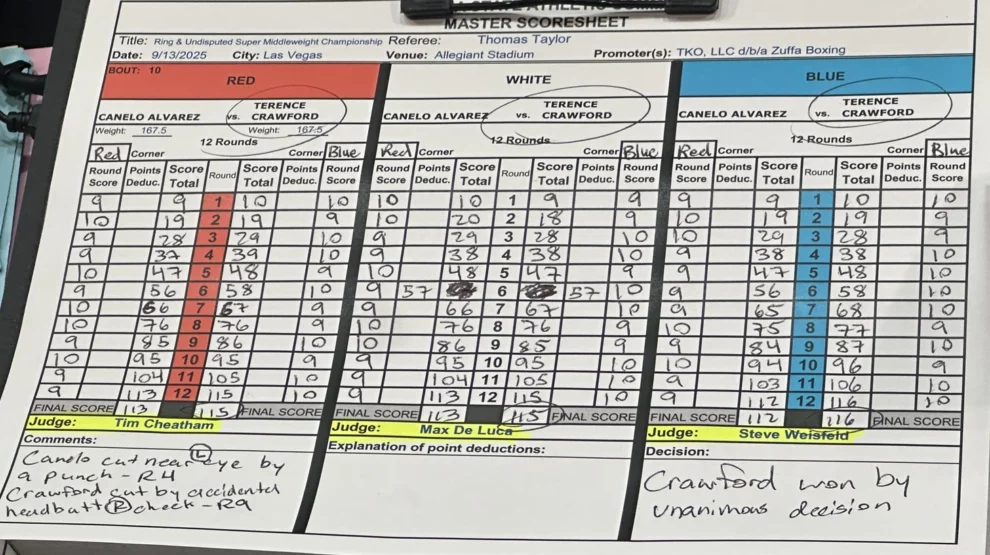 ATHLETIC
MASTER SCORESHEET
Title: Ring & Undisputed Super Middleweight Championship Referee: Thomas Taylor
Date: 9/13/2025 City: Las Vegas Venue: Allegiant Stadium Promoter(s): TKO, LLC d/b/a Zuffa Boxing
BOUT: 10
RED WHITE BLUE
CANELO ALVAREZ vs. TERENCE CRAWFORD CANELO ALVAREZ vs. TERENCE CRAWFORD CANELO ALVAREZ vs. TERENCE CRAWFORD
Weight: 167.5 Weight: 167.5
12 Rounds 12 Rounds 12 Rounds
Red Corner Corner Blue Red Corner Corner Blue Red Corner Corner Blue
Round Score Points Deduc. Score Total Round Score Total Points Deduc. Round Score Round Score Points Deduc. Score Total Round Score Total Points Deduc. Round Score Round Score Points Deduc. Score Total Round Score Total Points Deduc. Round Score
9 9 1 10 10 10 10 1 9 9 9 9 1 10 10
10 19 2 19 9 10 20 2 18 9 10 19 2 19 9
9 28 3 29 10 9 29 3 28 10 10 29 3 28 9
9 37 4 39 10 9 38 4 38 10 9 38 4 38 10
10 47 5 48 9 10 48 5 47 9 9 47 5 48 10
9 56 6 58 10 9 57 6 57 10 9 56 6 58 10
10 66 7 67 9 9 66 7 67 10 9 65 7 68 10
10 76 8 76 9 10 76 8 76 9 10 75 8 77 9
9 85 9 86 10 10 86 9 85 9 9 84 9 87 10
10 95 10 95 9 9 95 10 95 10 10 94 10 96 9
9 104 11 105 10 9 104 11 105 10 9 103 11 106 10
9 113 12 115 10 9 113 12 115 10 9 112 12 116 10
FINAL SCORE 113 115 FINAL SCORE FINAL SCORE 113 115 FINAL SCORE FINAL SCORE 112 116 FINAL SCORE
Judge: Tim Cheatham Judge: Max De Luca Judge: Steve Weisfeld
Comments: Explanation of point deductions: Decision:
Canelo cut near (L) eye by
a punch - R4
Crawford cut by accidental
headbutt (R) cheek - R9
Crawford won by
unanimous decision